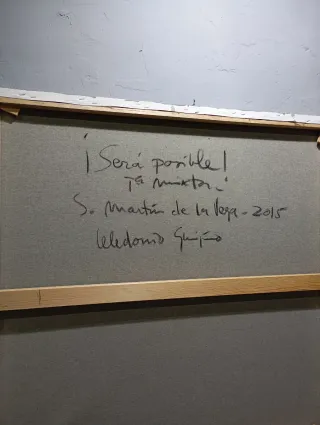 ¡Será posible!
Tª mixta.
S. Martín de la Vega - 2015
Celedonio